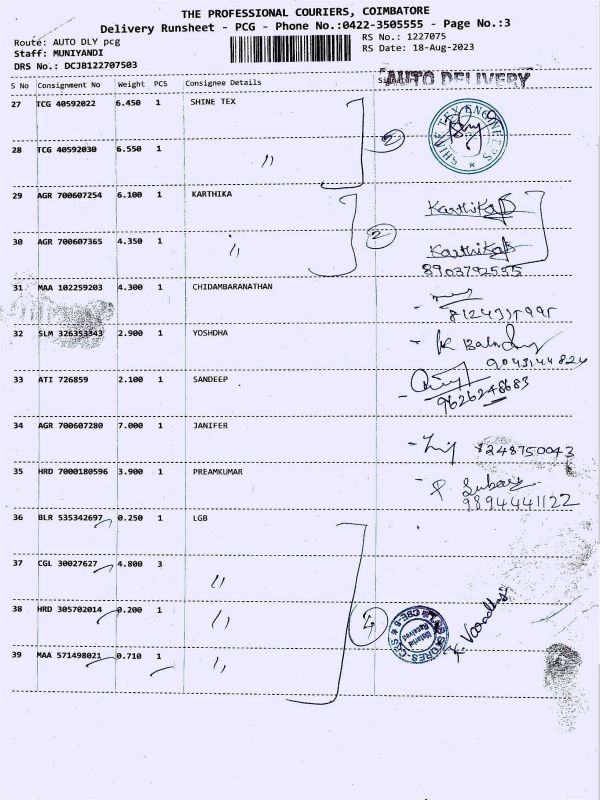 THE PROFESSIONAL COURIERS, COIMBATORE
Delivery Runsheet - PCG - Phone No.:0422-3505555 - Page No.:3
Route: AUTO DLY pcg
RS No.: 1227075
Staff: MUNIYANDI
RS Date: 18-Aug-2023
DRS No.: DCJB122707503
AUTO DELIVERY
S No Consignment No Weight PCS Consignee Details
27 TCG 40592022 6.450 1 SHINE TEX
2
28 TCG 40592030 6.550 1 "
29 AGR 700607254 6.100 1 KARTHIKA Karthika
2
30 AGR 700607365 4.350 1 " Karthika
8903792555
31 MAA 102259203 4.300 1 CHIDAMBARANATHAN
32 SLM 326353343 2.900 1 YOSHDHA
9043144824
33 ATI 726859 2.100 1 SANDEEP
9626248683
34 AGR 700607280 7.000 1 JANIFER
8248750043
35 HRD 7000180596 3.900 1 PREAMKUMAR
9894441122
36 BLR 535342697 0.250 1 LGB
37 CGL 30027627 4.800 3 "
38 HRD 305702014 0.200 1 "
4
39 MAA 571498021 0.710 1 "